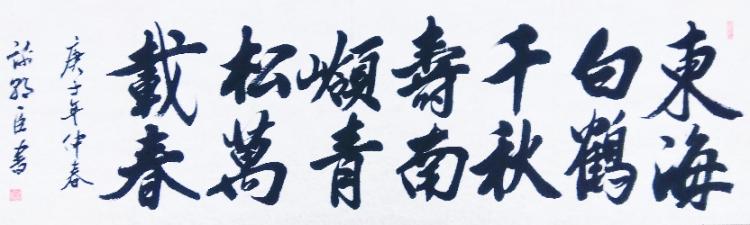 東海
白鶴
千秋
壽南
嶺青
松萬
載春
庚子年仲春